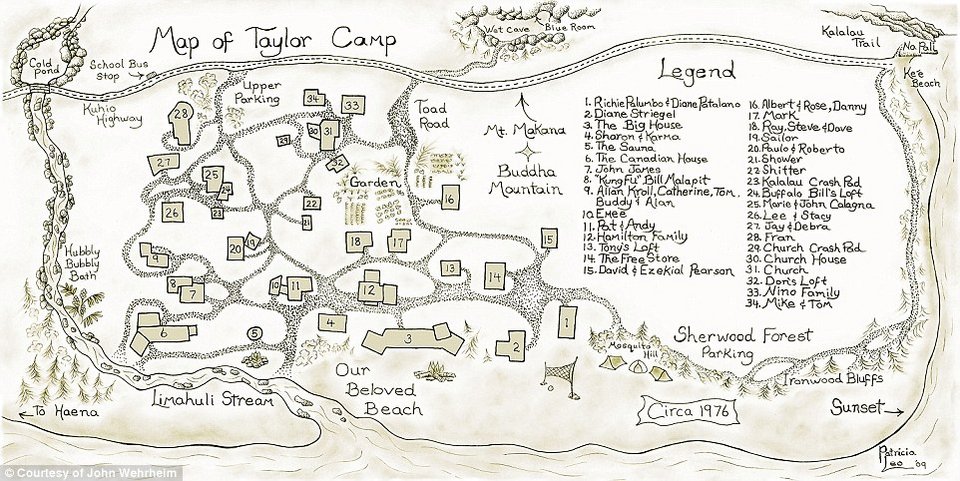 Map of Taylor Camp
Wet Cave
Blue Room
Kalalau
Trail
Na Pali
Ke'e
Beach
Cold
Pond
School Bus
Stop
Kuhio
Highway
Upper
Parking
Toad
Road
Mt. Makana
Buddha
Mountain
Garden
Hubbly
Bubbly
Bath
Legend
1. Richie Palumbo & Diane Patalano
2. Diane Striegel
3. The Big House
4. Sharon & Karma
5. The Sauna
6. The Canadian House
7. John James
8. "Kung Fu" Bill Malapit
9. Allan Kroll, Catherine, Tom,
Buddy & Alan
10. Emee
11. Pat & Andy
12. Hamilton Family
13. Tony's Loft
14. The Free Store
15. David & Ezekial Pearson
16. Albert & Rose, Danny
17. Mark
18. Ray, Steve & Dave
19. Sailor
20. Paulo & Roberto
21. Shower
22. Shitter
23. Kalalau Crash Pad
24. Buffalo Bill's Loft
25. Marie & John Calagna
26. Lee & Stacy
27. Jay & Debra
28. Fran
29. Church Crash Pad
30. Church House
31. Church
32. Dori's Loft
33. Nino Family
34. Mike & Tom
34
33
28
29
30
31
27
32
25
24
26
23
22
21
16
20
19
18
17
15
9
8
7
10
11
12
13
14
6
5
4
3
2
1
Mosquito
Hill
Sherwood Forest
Parking
Ironwood Bluffs
Our
Beloved
Beach
Limahuli Stream
To Haena
Circa 1976
Sunset
Patricia
Leo '09
© Courtesy of John Wehrheim